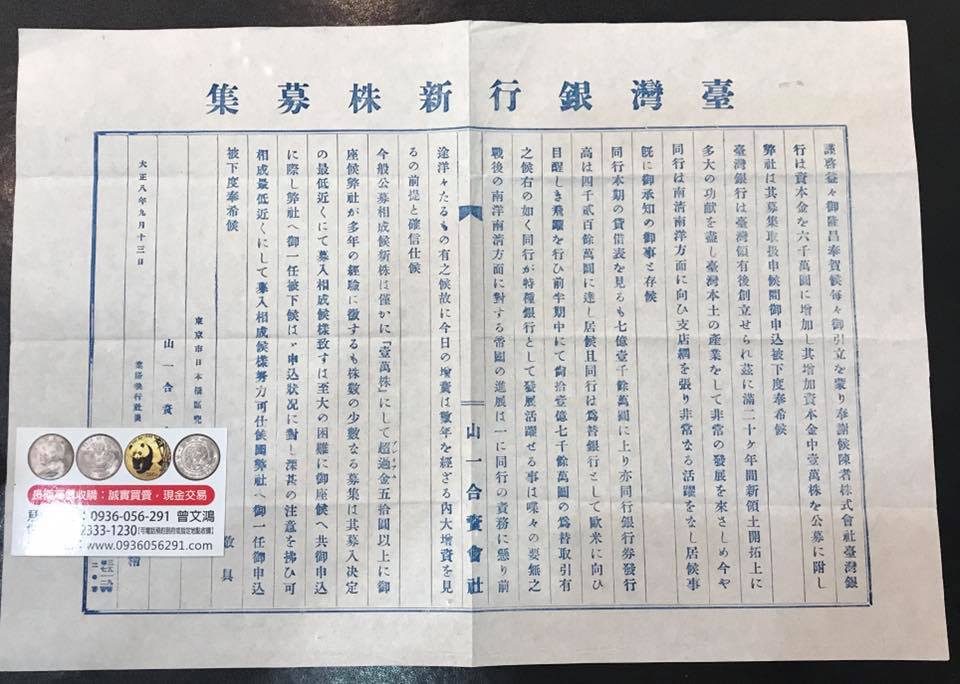 臺灣銀行新株募集
謹啓益々御隆昌奉賀候每々御引立を蒙り奉謝候陳者株式會社臺灣銀
行は資本金を六千萬圓に增加し其增加資本金中壹萬株を公募に附し
弊社は其募集取扱申候間御申込被下度奉希候
臺灣銀行は臺灣領有後創立せられ茲に滿二十ヶ年間新領土開拓上に
多大の功獻を盡し臺灣本土の產業をして非常の發展を來さしめ今や
同行は南淸南洋方面に向ひ支店網を張り非常なる活躍をなし居候事
旣に御承知の御事と存候
同行本期の貸借表を見るも七億壹千餘萬圓に上り亦同行銀行券發行
高は四千貳百餘萬圓に達し居候且同行は爲替銀行として歐米に向ひ
目醒しき飛躍を行ひ前半期中にて拾壹億七千餘萬圓の爲替取引有
之候右の如く同行が特種銀行として發展活躍せる事は喋々の要無之
戰後の南洋南淸方面に對する帝國の進展は一に同行の責務に懸り前
山一合資會社
途洋々たるもの有之候故に今日の增資は數年を經ざる內大增資を見
るの前提と確信仕候
今般公募相成候新株は僅かに「壹萬株」にして超過金五拾圓以上に御
プレミアム
座候弊社が多年の經驗に徵するも株數の少數なる募集は其募入決定
の最低近くにて募入相成候樣致すは至大の困難に御座候へ共御申込
に際し弊社へ御一任被下候はゞ申込狀況に對し深甚の注意を拂ひ可
相成最低近くにして募入相成候樣努方可仕候間弊社へ御一任御申込
被下度奉希候
敬具
大正八年九月十三日
東京市日本橋區兜
山一合資
業務執行社員
收購：誠實買賣，現金交易
：0936-056-291 曾文鴻
2333-1230
www.0936056291.com